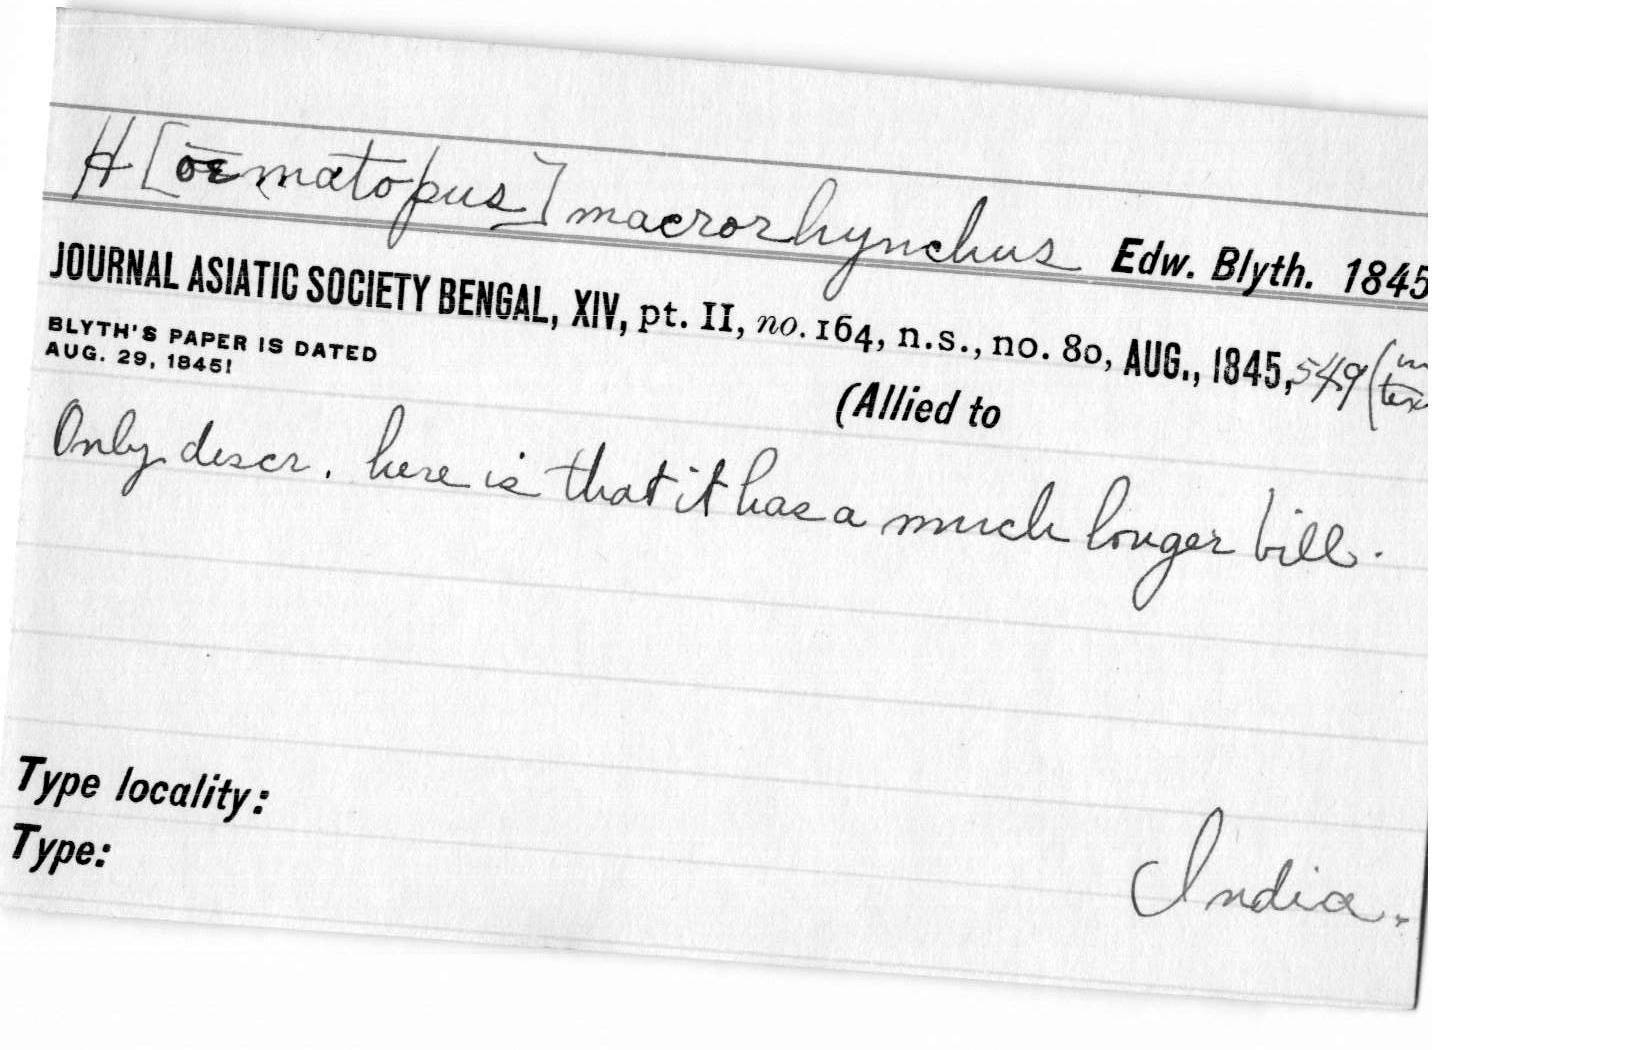 H[œmatopus] macrorhynchus Edw. Blyth. 1845
JOURNAL ASIATIC SOCIETY BENGAL, XIV, pt. II, no. 164, n.s., no. 80, AUG., 1845, 549 (
BLYTH'S PAPER IS DATED
AUG. 29, 1845!
(Allied to
Only descr. here is that it has a much longer bill.
Type locality:
Type:
India.